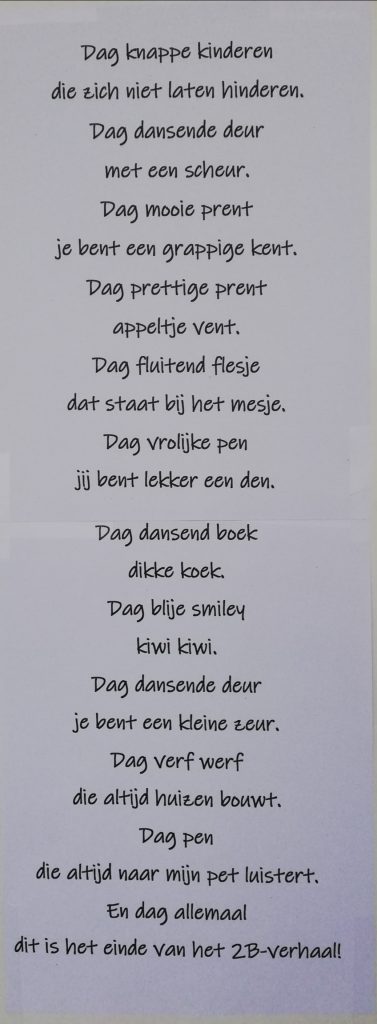 Dag knappe kinderen
die zich niet laten hinderen.
Dag dansende deur
met een scheur.
Dag mooie prent
je bent een grappige kent.
Dag prettige prent
appeltje vent.
Dag fluitend flesje
dat staat bij het mesje.
Dag vrolijke pen
jij bent lekker een den.
Dag dansend boek
dikke koek.
Dag blije smiley
kiwi kiwi.
Dag dansende deur
je bent een kleine zeur.
Dag verf werf
die altijd huizen bouwt.
Dag pen
die altijd naar mijn pet luistert.
En dag allemaal
dit is het einde van het 2B-verhaal!